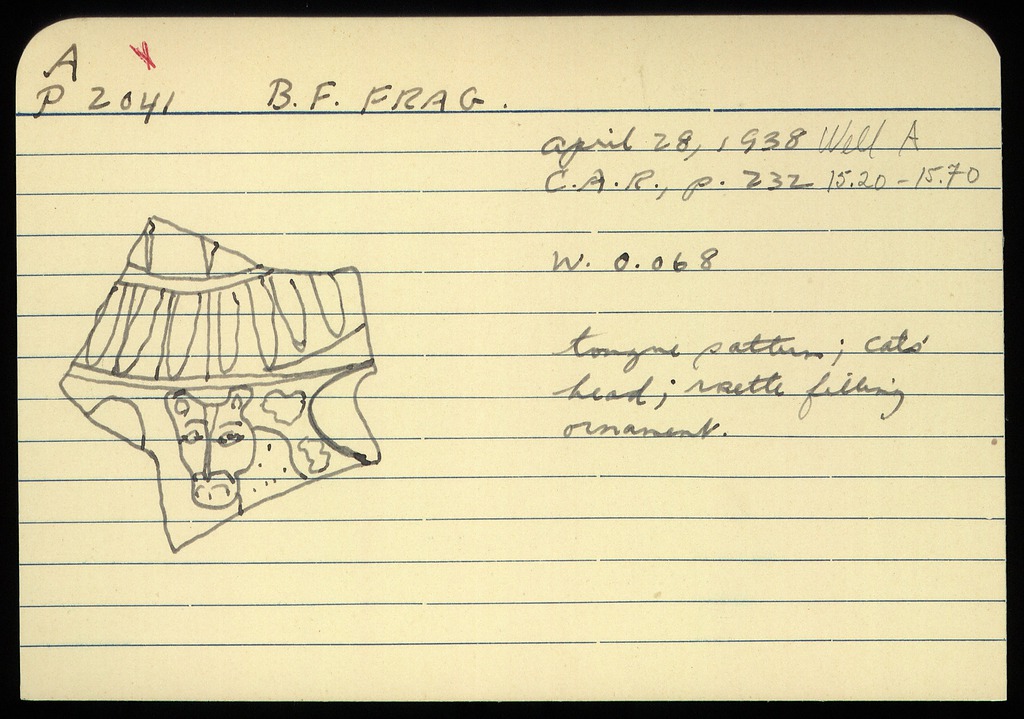 A
P 2041 B.F. FRAG.
april 28, 1938 Well A
C.A.R., p. 232 15.20-15.70
W. 0.068
tongue pattern; cats'
head; rosette filling
ornament.